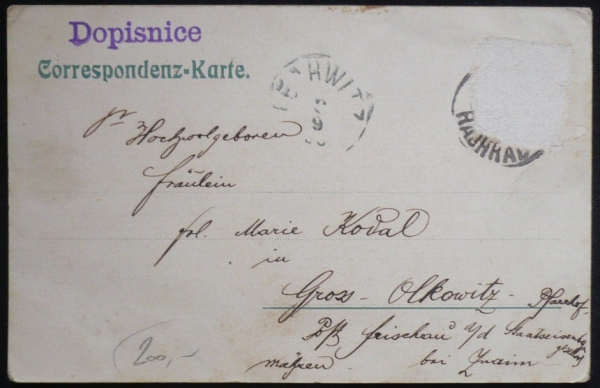 Dopisnice
Correspondenz-Karte.
RAJHRAD
Hochwolgeboren
Fräulein
frl. Marie Kodal
in
Gross-Olkowitz Pfarrhof
Post Frischau a/d Staatseisenb.
mähren bei Znaim
200,-